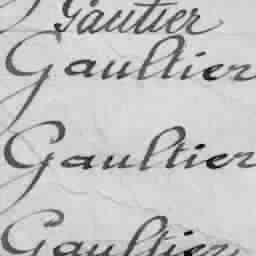 Gautier
Gaultier
Gaultier
Gaultier